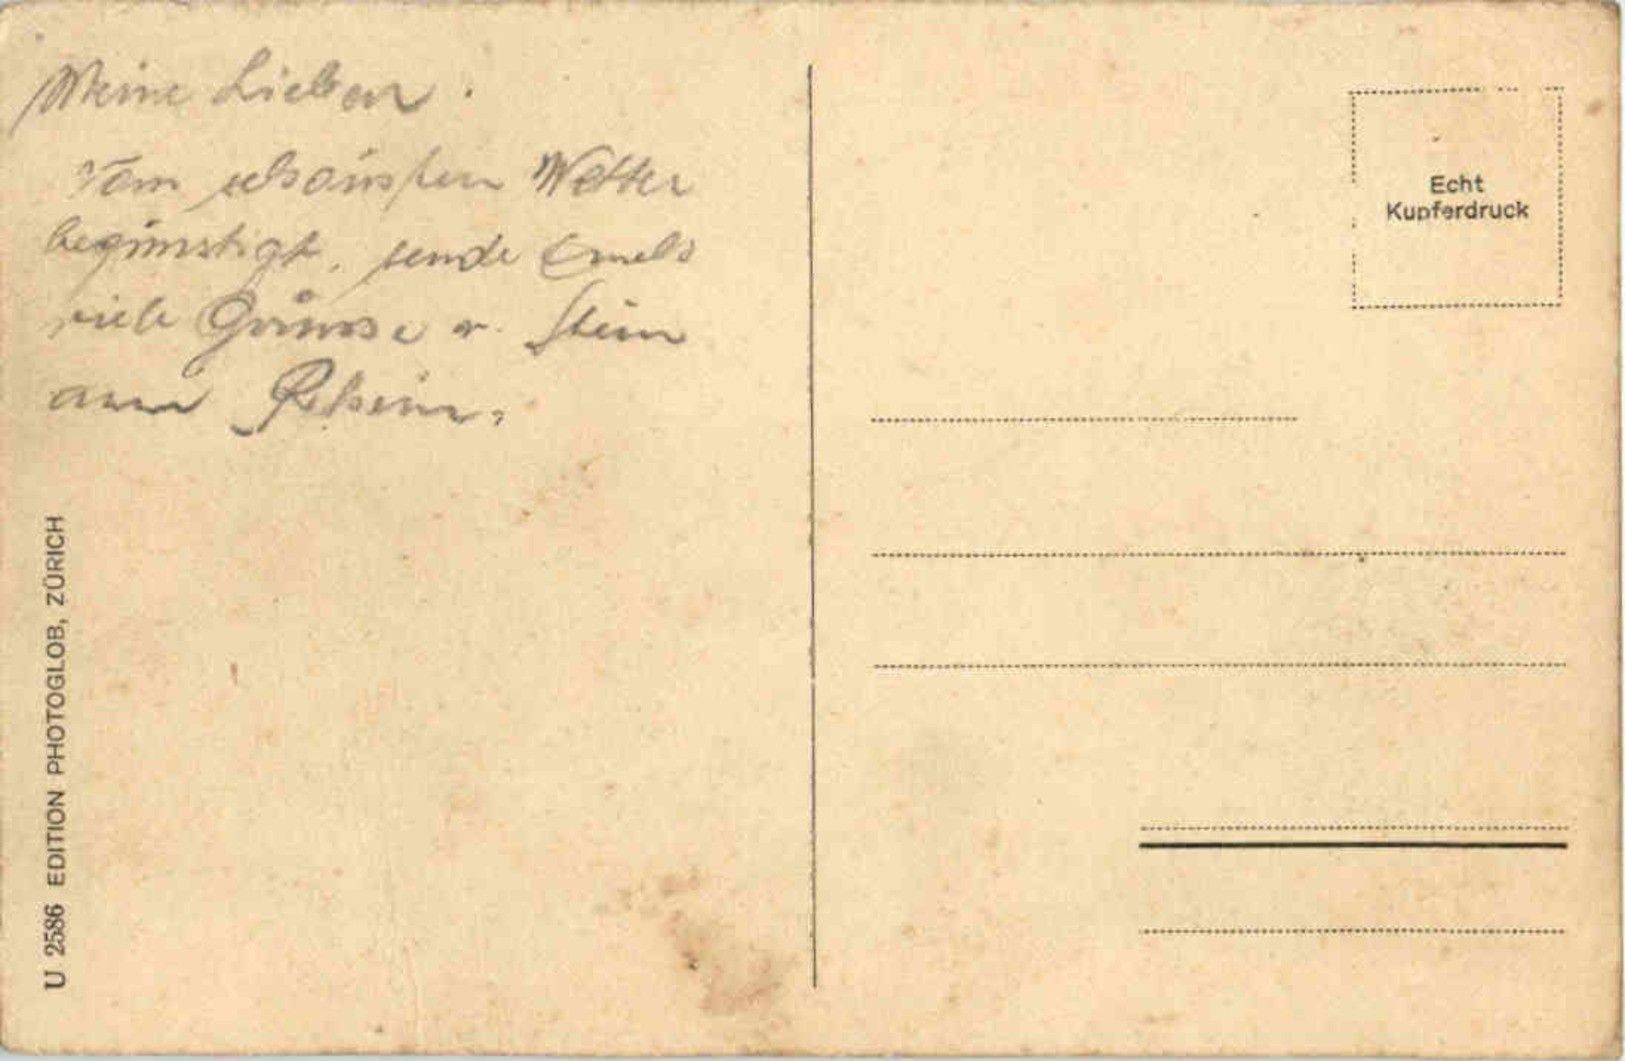 Meine Lieben.
Vom schönsten Wetter
begünstigt, sende Euch
viele Grüsse v. Stein
am Rhein.
Echt
Kupferdruck
U 2586 EDITION PHOTOGLOB, ZÜRICH